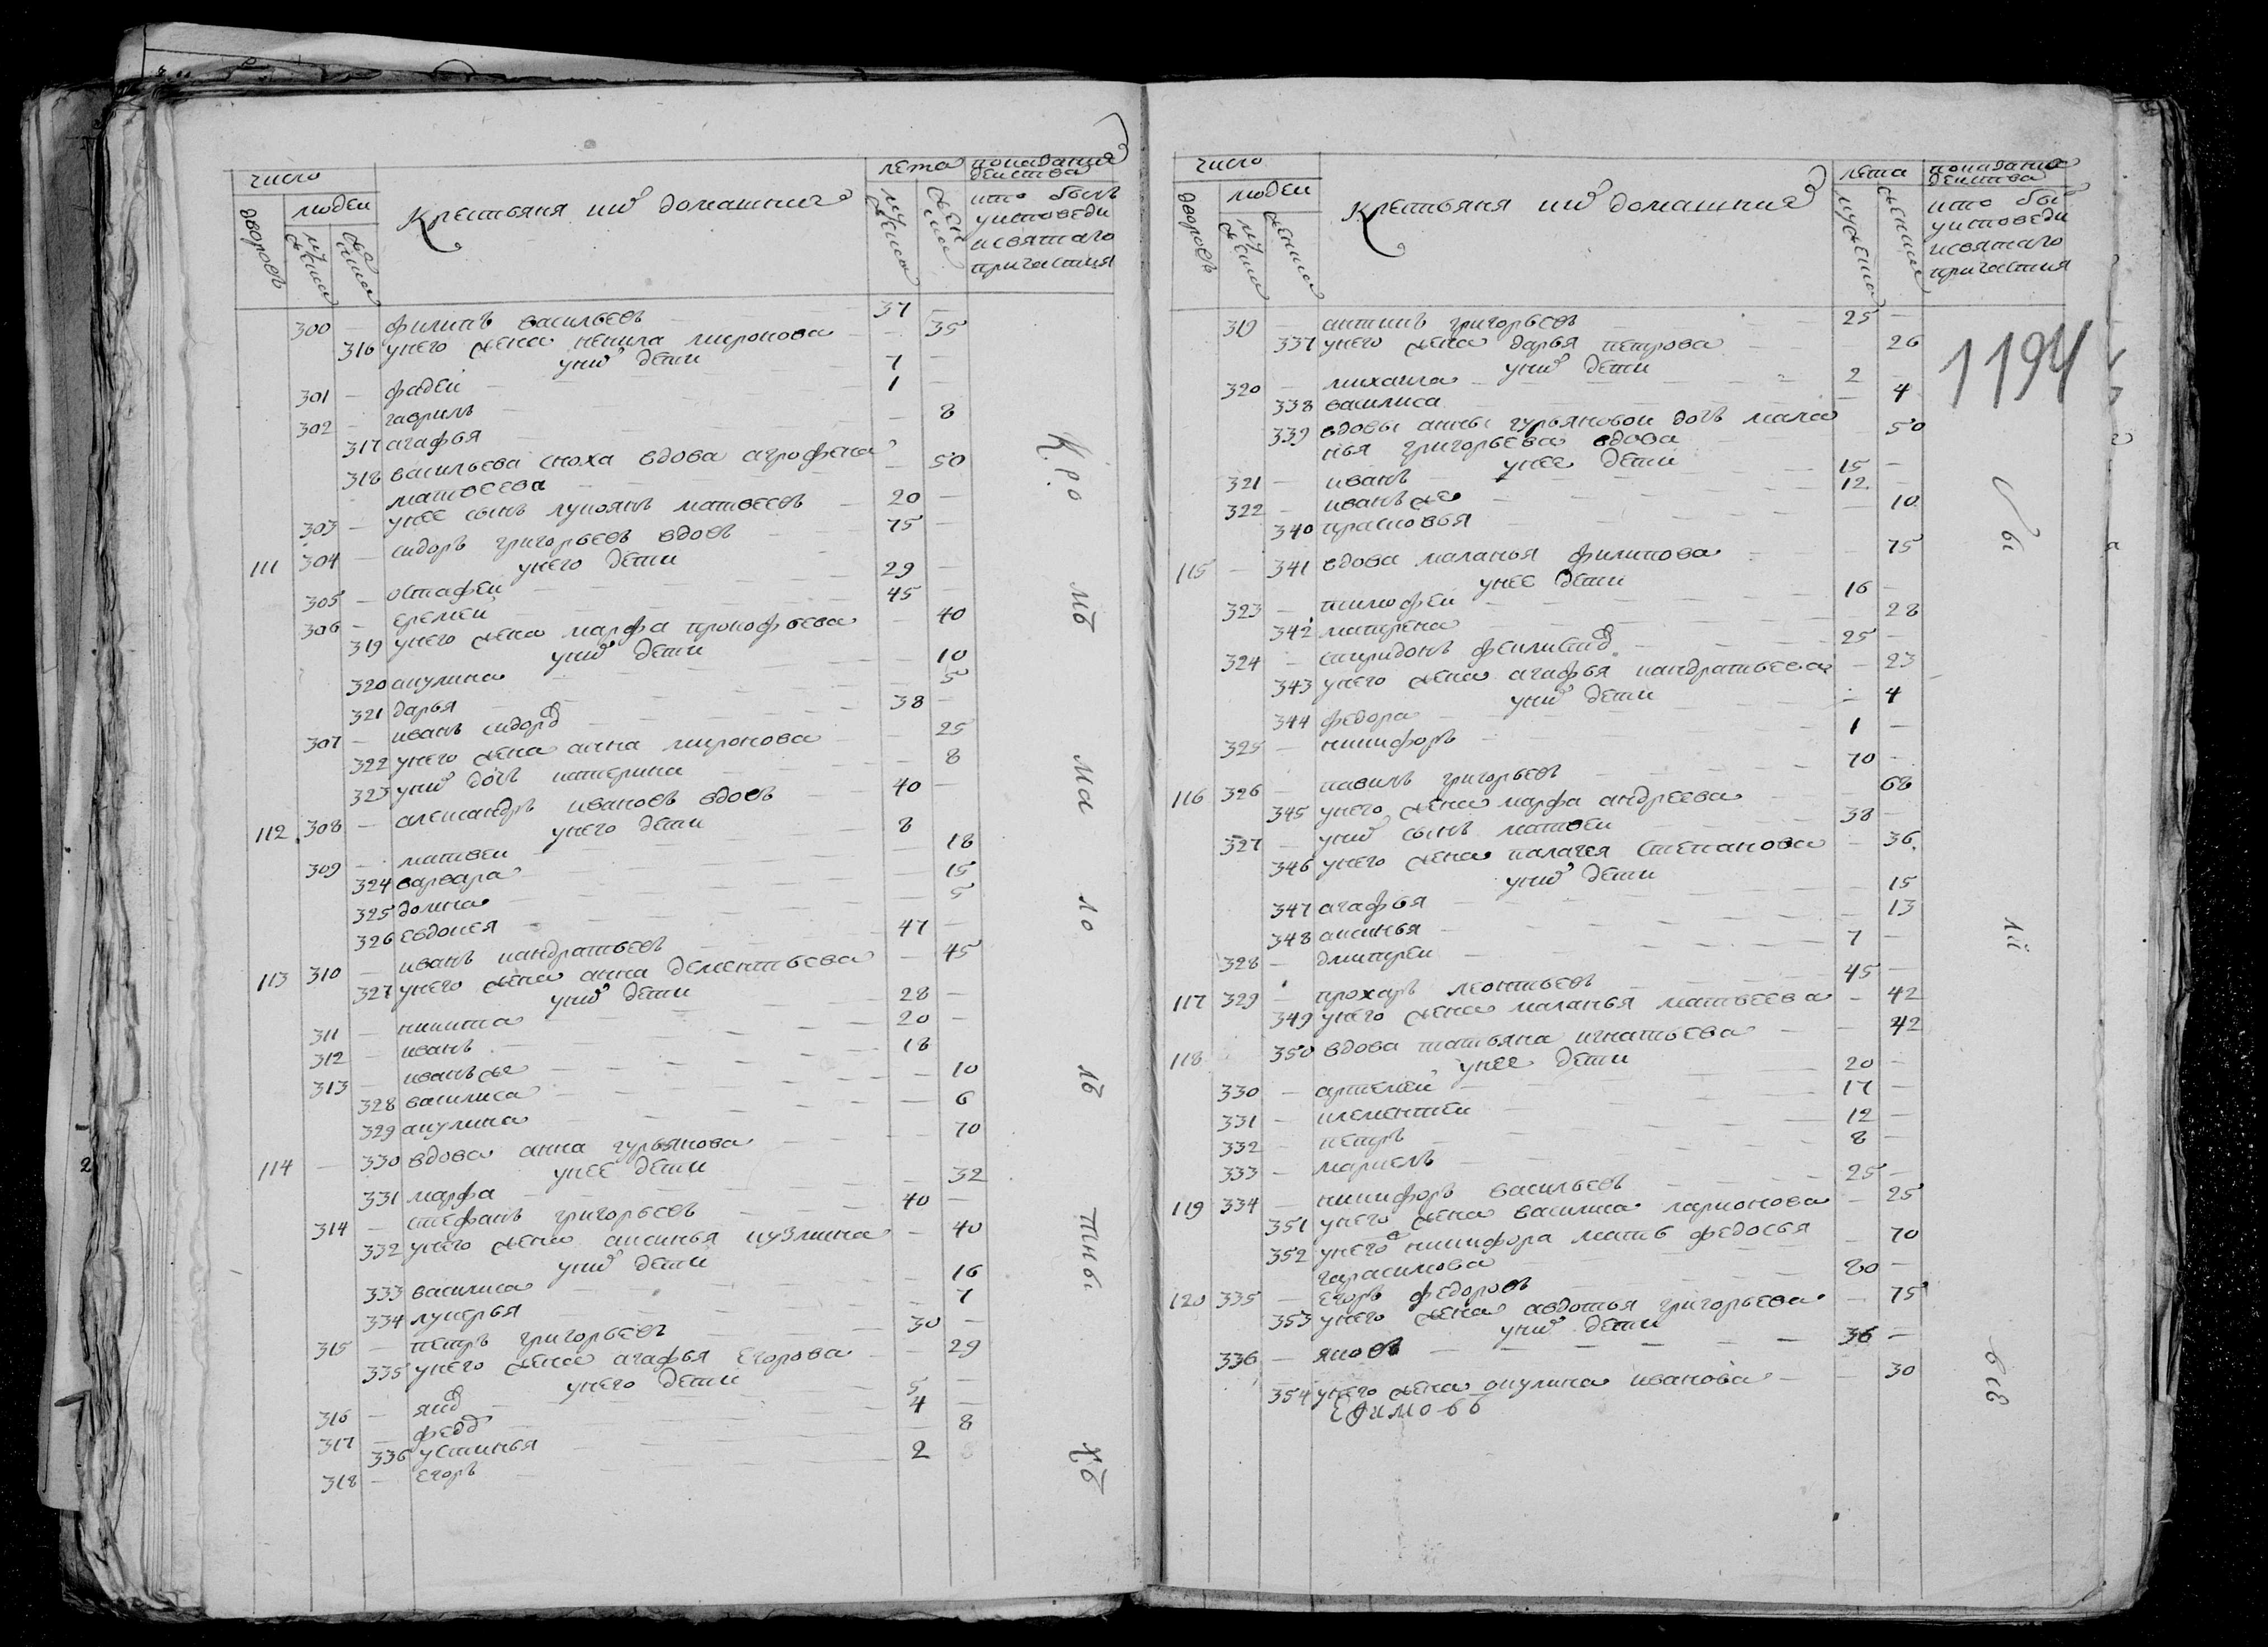 число
людеи
дворовъ
мужеска
женска
Крестьяня ихъ домашния
лета
мужеска
женска
покаяния
действа
кто былъ
уисповеди
исвятаго
причастия
300 — филипъ васильевъ — 37 —
316 унего жена ненила миронова — 35
уних дети
301 — фадеи — 7 —
302 — гаврилъ — 1 —
317 агафья — 8
318 васильева сноха вдова агрофена
матвеева — 50
303 — унее сынъ лукоянъ матвеевъ — 20 —
111 304 — сидоръ григорьевъ вдовъ — 75 —
унего дети
305 — остафеи — 29 —
306 — еремеи — 45 —
319 унего жена марфа прокофьева — 40
уних дети
320 акулина — 10
321 дарья — 5
307 — иванъ сидоров — 38 —
322 унего жена анна миронова — 25
323 уних дочь катерина — 8
112 308 — александръ ивановъ вдовъ — 40 —
унего дети
309 — матвеи — 8
324 варвара — 18
325 домна — 15
326 евдокея — 5
113 310 — иванъ кандратьевъ — 47 —
327 унего жена анна дементьева — 45
уних дети
311 — никита — 28 —
312 — иванъ — 20 —
313 — иванъ же — 18
328 василиса — 10
329 акулина — 6
114 — 330 вдова анна гурьянова — 70
унее дети
331 марфа — 32
314 — стефанъ григорьевъ — 40 —
332 унего жена аксинья кузмина — 40
уних дети
333 василиса — 16
334 лукерья — 7
315 — петръ григорьевъ — 30 —
335 унего жена агафья егорова — 29
унего дети
316 — яков — 5 —
317 — федор — 4 —
336 устинья — 8
318 — егоръ — 2
К.ро
мѣ
ма
ло
лѣ
тны
хъ
число
людеи
дворовъ
мужеска
женска
Крестьяня ихъ домашния
лета
мужеска
женска
покаяния
действа
кто бы
уисповеди
исвятаго
причастия
1194
319 — антипъ григорьевъ — 25 —
337 унего жена дарья петрова — 26
уних дети
320 — михаила — 2 —
338 василиса — 4
339 вдовы анны гурьяновои дочь мала
нья григорьева вдова — 50
унее дети
321 — иванъ — 15 —
322 — иванъ же — 12 —
340 прасковья — 10
115 — 341 вдова маланья филипова — 75
унее дети
323 — тимофеи — 16 —
342 матрена — 28
324 — спиридонъ — 25 —
343 унего жена агафья кандратьева — 23
уних дети
344 федора — 4
325 — никифоръ — 1 —
116 326 — павилъ григорьевъ — 70 —
345 унего жена марфа андреева — 68
327 — уних сынъ матвеи — 38 —
346 унего жена палагея степанова — 36
уних дети
347 агафья — 15
348 аксинья — 13
328 — дмитреи — 7 —
117 329 — прохаръ леонтьевъ — 45 —
349 унего жена маланья матвеева — 42
118 350 вдова татьяна игнатьева — 42
унее дети
330 — артемеи — 20 —
331 — клементеи — 17 —
332 — петръ — 12 —
333 — маркелъ — 8 —
119 334 — никифоръ васильевъ — 25 —
351 унего жена василиса ларионова — 25
352 унего никифора мать федосья
гарасимова — 70
120 335 — егоръ федоровъ — 80 —
353 унего жена авдотья григорьева — 75
уних дети
336 — яковъ — 36 —
354 унего жена окулина иванова — 30
ефимовъ
бы
ли